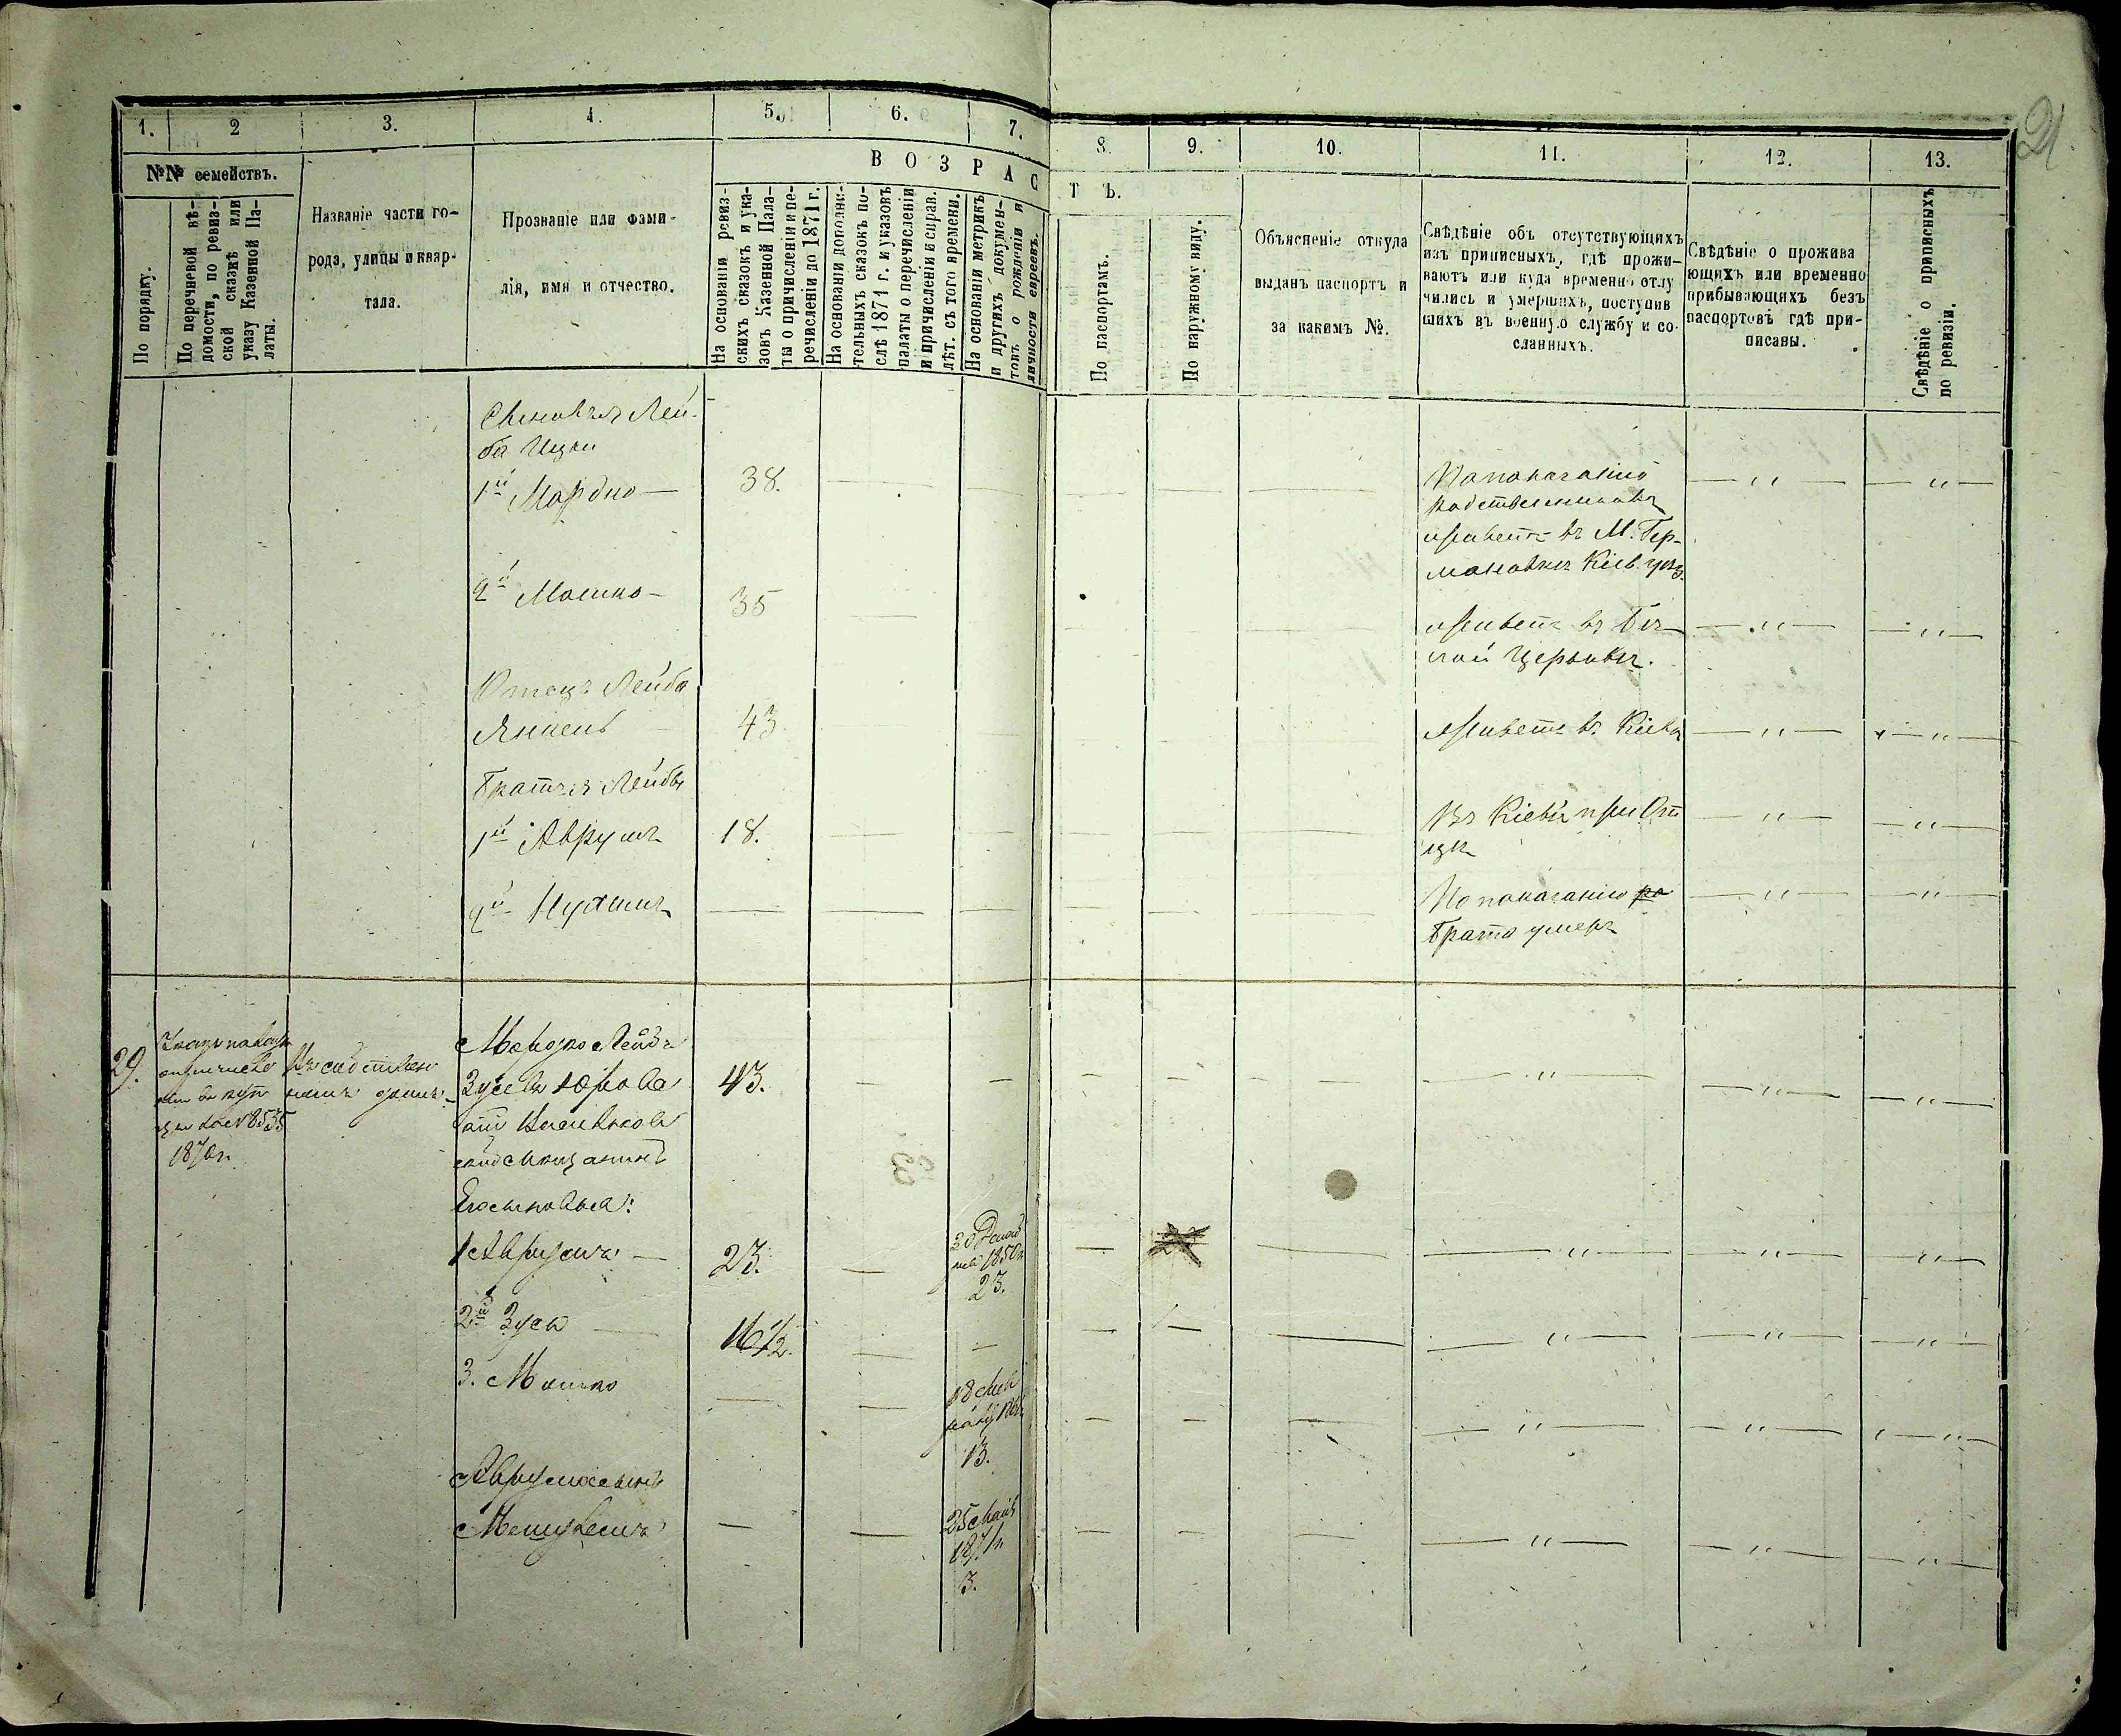 21
1.
2
3.
4.
5.
6.
7.
8.
9.
10.
11.
12.
13.
№№ семействъ.
По порядку.
По перечневой вѣ-
домости, по ревиз-
ской сказкѣ или
указу Казенной Па-
латы.
Названіе части го-
рода, улицы и квар-
тала.
Прозваніе или фами-
лія, имя и отчество.
ВОЗРАС
ТЪ.
На основаніи ревиз-
скихъ сказокъ и ука-
зовъ Казенной Пала-
ты о причисленіи и пе-
речисленіи до 1871 г.
На основаніи дополни-
тельныхъ сказокъ по-
слѣ 1871 г. и указовъ
палаты о перечисленіи
и причисленіи и справ.
лѣт. съ того времени.
На основаніи метрикъ
и другихъ докумен-
товъ о рожденіи и
личности евреевъ.
По паспортамъ.
По наружному виду.
Объясненіе откуда
выданъ паспортъ и
за какимъ №.
Свѣдѣніе объ отсутствующихъ
изъ приписныхъ, гдѣ прожи-
ваютъ или куда временно отлу
чились и умершихъ, поступив
шихъ въ военную службу и со-
сланныхъ.
Свѣдѣніе о прожива
ющихъ или временно
прибывающихъ безъ
паспортовъ гдѣ при-
писаны.
Свѣдѣніе о приписныхъ
по ревизіи.
Сыновья Лей-
ба Ицки
1й Мордко — 38. — — — — —
По показанію
родственниковъ
живетъ въ М. Гер-
мановкѣ Кіев. уѣз.
— „ — — „ —
2й Мошко — 35 — — — —
живетъ въ Бѣ-
лой Церквѣ.
— „ — — „ —
Отецъ Лейба
Янкель — 43. — — — —
живетъ въ Кіевѣ — „ — — „ —
Братья Лейбы
1й Аврумъ 18. — — — — —
Въ Кіевѣ при От
цѣ
— „ — — „ —
2й Нухимъ — — — — — —
По показанію ро
брата умеръ
— „ — — „ —
29.
1870 г.
Въ собствен
номъ домѣ —
Мордко Лейба
Зусевъ
Васильков
скій мѣщанинъ
43. — — — — — — „ — — „ — — „ —
Его сыновья:
1 Аврумъ — 23. —
30
1850 г.
23.
— — — „ — — „ — — „ —
2й Зусь — 16½. — — — — — — „ — — „ — — „ —
3. Мошко — —
18
13.
— — — — „ — — „ — — „ —
Аврума сынъ
— —
25 Мая
1871 г.
3.
— — — — „ — — „ — — „ —